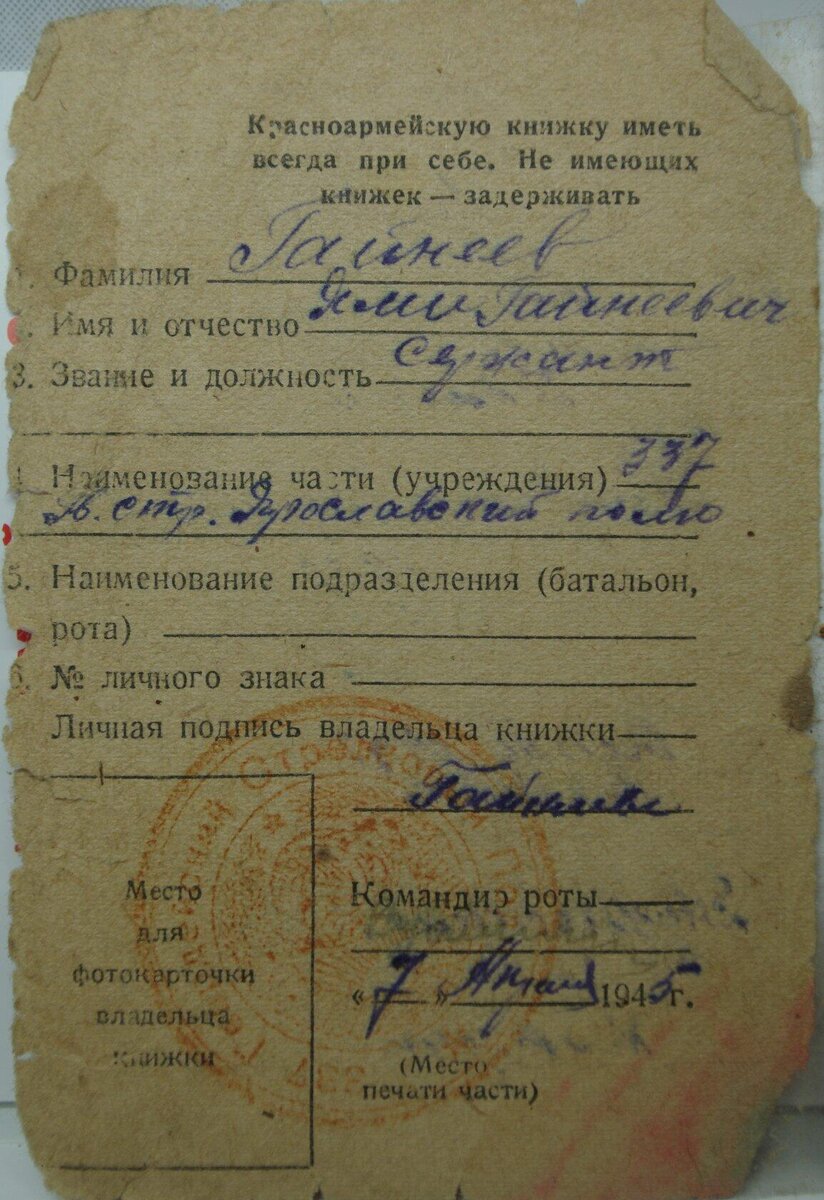 Красноармейскую книжку иметь
всегда при себе. Не имеющих
книжек — задерживать
1. Фамилия Гайнеев
2. Имя и отчество Ями Гайнеевич
3. Звание и должность сержант
4. Наименование части (учреждения) 337
стр. Ярославский полк
5. Наименование подразделения (батальон,
рота)
6. № личного знака
Личная подпись владельца книжки
Место
для
фотокарточки
владельца
книжки
Командир роты
«7» Апреля 1945 г.
(Место
печати части)